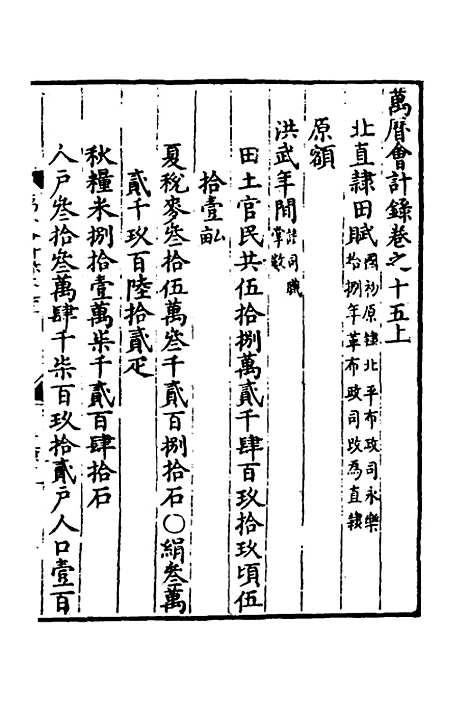 萬曆會計錄卷之十五上
北直隸田賦國初原隸北平布政司永樂拾捌年革布政司改爲直隸
原額
洪武年間諸司職掌數
田土官民共伍拾捌萬貳千肆百玖拾玖頃伍
拾壹畝
夏稅麥叁拾伍萬叁千貳百捌拾石○絹叁萬
貳千玖百陸拾貳疋
秋糧米捌拾壹萬柒千貳百肆拾石
人戶叁拾叁萬肆千柒百玖拾貳戶人口壹百